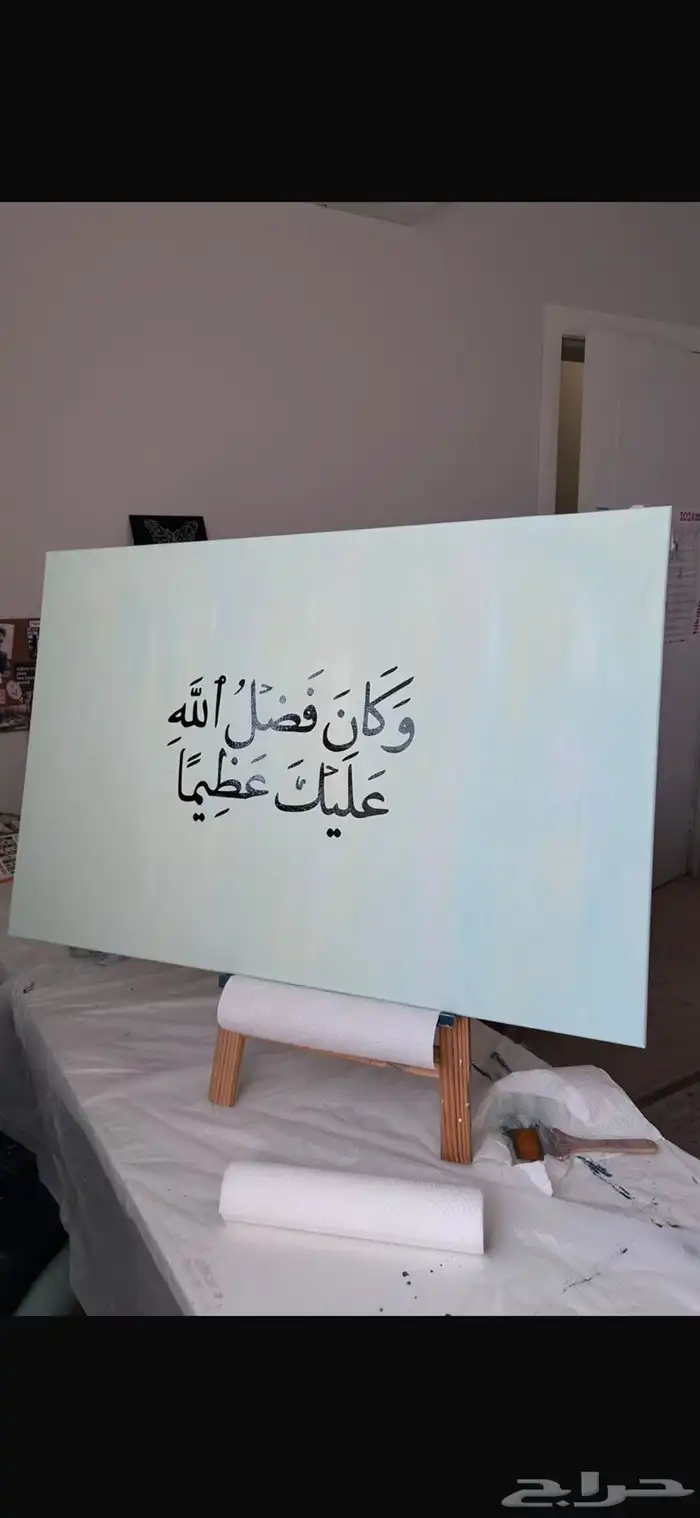 وَكَانَ فَضْلُ ٱللَّهِ
عَلَيْكَ عَظِيمًا
2024
حراج